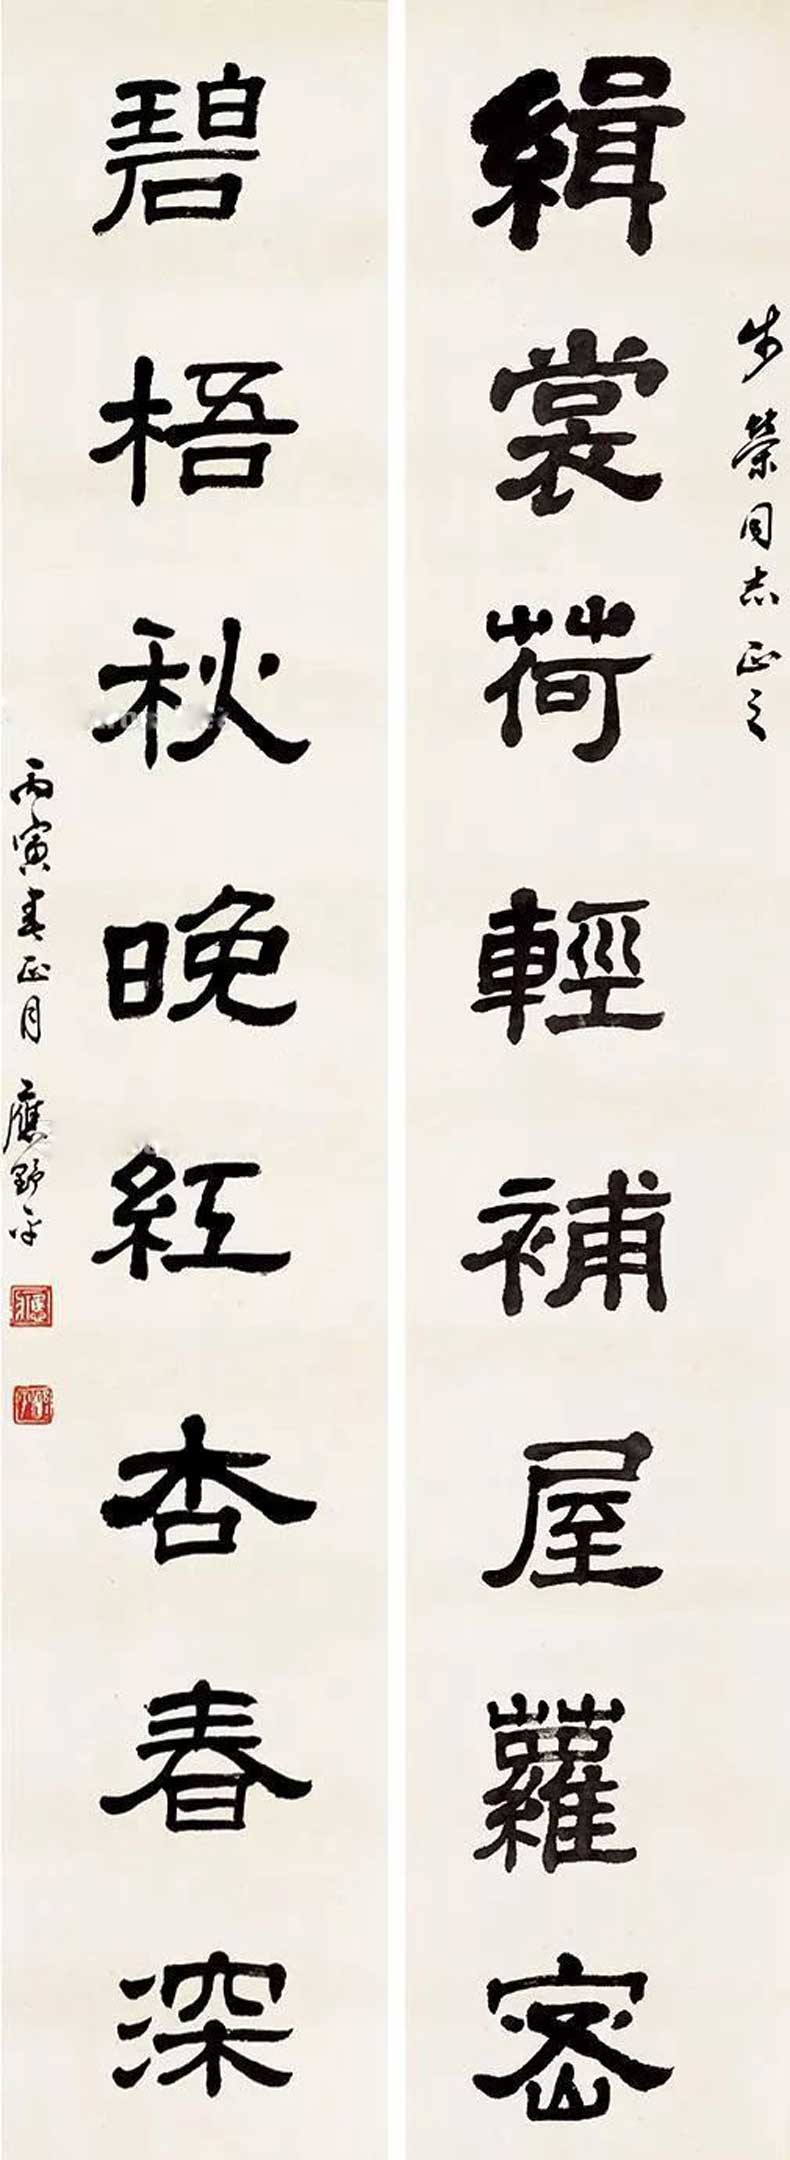 步榮同志正之
緝裳荷輕補屋蘿密
碧梧秋晚紅杏春深
丙寅春正月 應野平